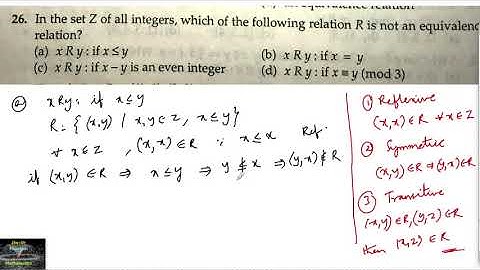 26. In the set Z of all integers, which of the following relation R is not an equivalenc
relation?
(a) x R y : if x ≤ y
(b) x R y : if x = y
(c) x R y : if x – y is an even integer
(d) x R y : if x ≡ y (mod 3)
ⓐ xRy : if x ≤ y
R = { (x,y) / x,y ∈ Z, x ≤ y }
∀ x ∈ Z , (x,x) ∈ R ∵ x ≤ x Ref.
if (x,y) ∈ R ⇒ x ≤ y ⇒ y ≰ x ⇒ (y,x) ∉ R
① Reflexive
(x,x) ∈ R ∀ x ∈ Z
② Symmetric
(x,y) ∈ R ⇒ (y,x) ∈ R
③ Transitive
(x,y) ∈ R, (y,z) ∈ R
then (x,z) ∈ R